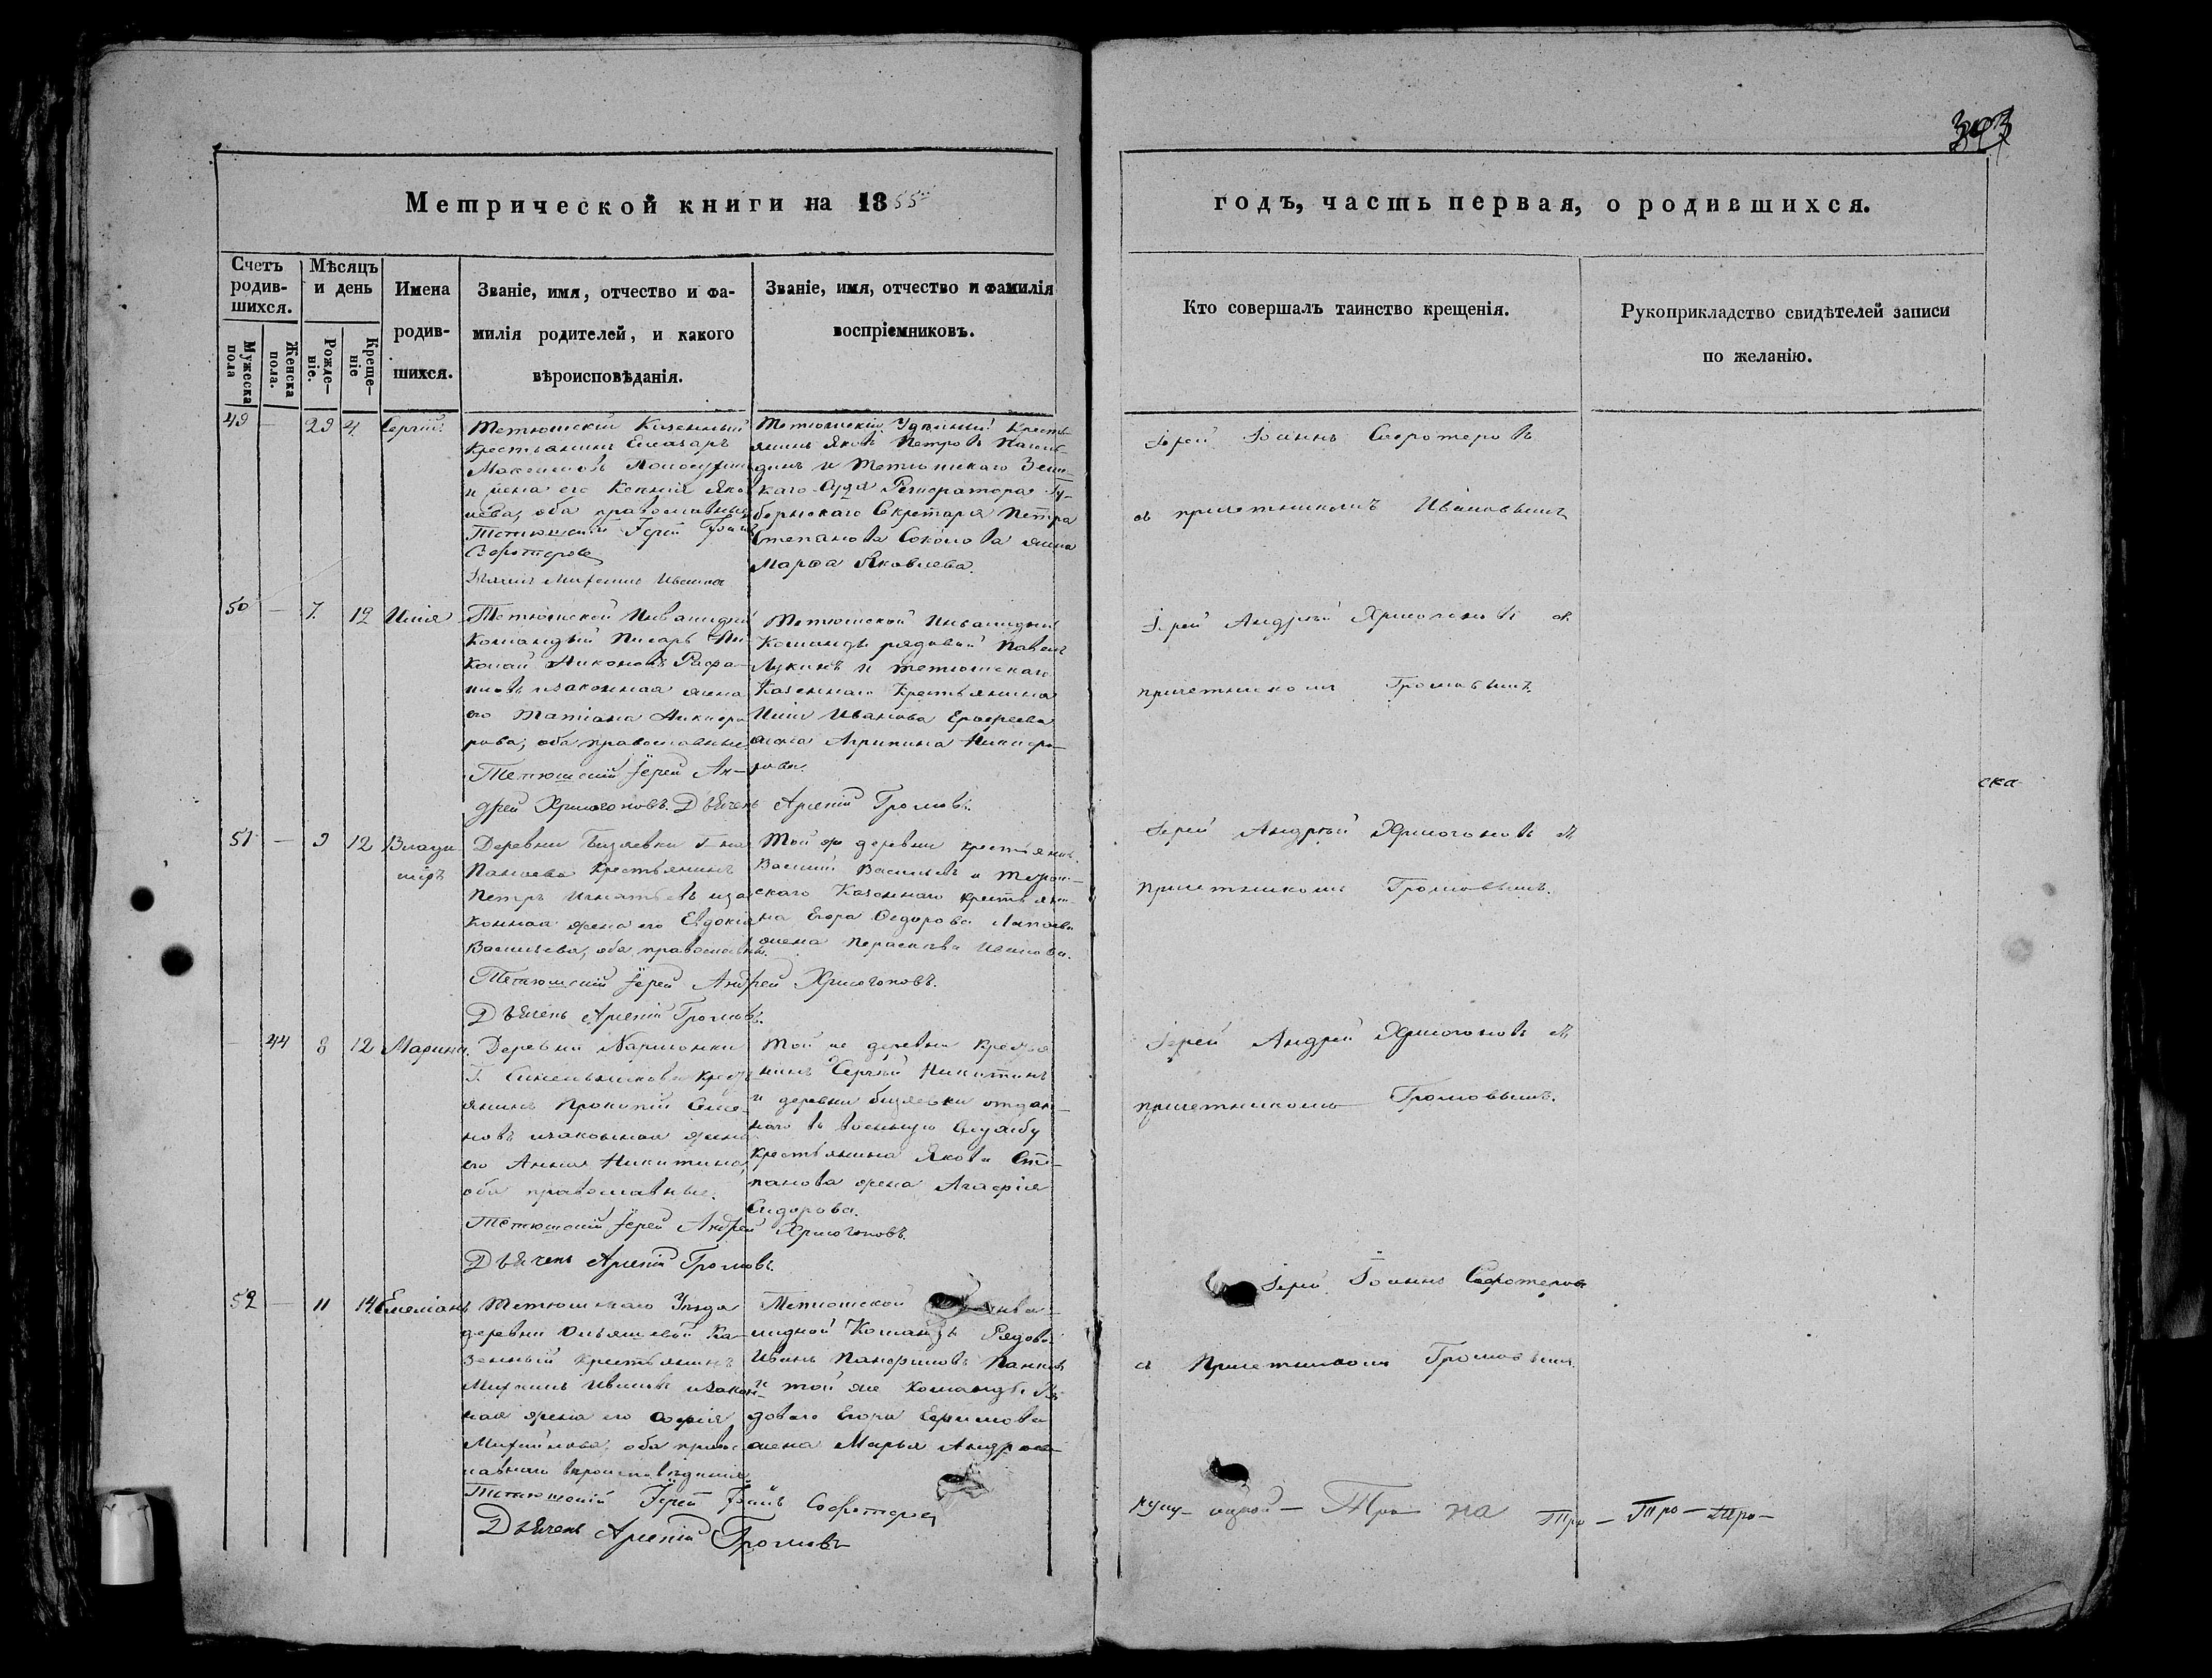 Метрической книги на 1855
годъ, часть первая, о родившихся.
Счетъ родив-
шихся.
Мѣсяцъ
и день
Имена
родив-
шихся.
Званіе, имя, отчество и фа-
милія родителей, и какого
вѣроисповѣданія.
Званіе, имя, отчество и фамилія
воспріемниковъ.
Мужеска
пола
Женска
пола.
Рожде-
ніе.
Креще-
ніе
Кто совершалъ таинство крещенія.
Рукоприкладство свидѣтелей записи
по желанію.
49 — 29 4. Сергій
Тетюшскій Казенный
Крестьянинъ Елеазаръ
Максимовъ
и жена его Ксенія Яков
лева, оба православные
Тетюшскій Іерей Іоаннъ
Софотеровъ
Михаилъ Ивановъ
Тетюшскій Удѣльный Кресть
янинъ Яковъ Петровъ
и Тетюшскаго Зем-
скаго Суда Регистратора Гу-
бернскаго Секретаря Петра
Степанова Соколова жена
Марѳа Яковлева.
Іерей Іоаннъ Софотеровъ
съ причетникомъ Ивановымъ
50 — 7. 12 Илія
Тетюшской Инвалидной
Командый Писарь Ни
колай Никоновъ
и законная жена
его Татіана Никифо
рова, оба православные.
Тетюшскій Іерей Ан-
дрей Хрисогоновъ. Дьячекъ Арсеній Громовъ.
Тетюшской Инвалидной
Команды рядовый Павелъ
Лукинъ и тетюшскаго
Казеннаго Крестьянина
Иліи Иванова Ерофеева
жена Агрипина Никифо-
рова.
Іерей Андрей Хрисогоновъ съ
причетникомъ Громовымъ.
ска
51 — 9 12 Влади
міръ
Деревни Бизяевки Г-на
Панаева Крестьянинъ
Петръ Игнатьевъ и за
конная жена его Евдокія
Васильева, оба православны.
Тетюшскій Іерей Андрей Хрисогоновъ.
Дьячекъ Арсеній Громовъ.
Той же деревни крестьянинъ
Василій Васильевъ и тетюш-
скаго Казеннаго крестьяни-
на Егора Федорова
жена Параскева
Іерей Андрей Хрисогоновъ съ
причетникомъ Громовымъ.
— 44 8 12 Марина.
Деревни
Г. Синельникова Кресть
янинъ Прокопій Семе-
новъ и законная жена
его Анна Никитина,
оба православные.
Тетюшскій Іерей Андрей Хрисогоновъ.
Дьячекъ Арсеній Громовъ.
Той же деревни Крестья
нинъ Сергѣй Никитинъ
и деревни Бизяевки отдан-
наго въ военную службу
крестьянина Якова Сте-
панова жена Агафія
Сидорова.
Іерей Андрей Хрисогоновъ съ
причетникомъ Громовымъ.
52 — 11 14. Емеліанъ
Тетюшскаго Уѣзда
деревни Ка-
зенный крестьянинъ
Михаилъ Ивановъ и закон-
ная жена его Софія
Михайлова, оба право
славнаго вѣроисповѣданія
Тетюшскій Іерей Іоаннъ Софотеровъ
Дьячекъ Арсеній Громовъ
Тетюшской Инва-
лидной Команды Рядовой
Иванъ Панфиловъ
и той же команды Ря
доваго Егора Ефимова
жена Марья
Іерей Іоаннъ Софотеровъ
съ Причетникомъ Громовымъ
Тро — на Тро — Тро — Тро —